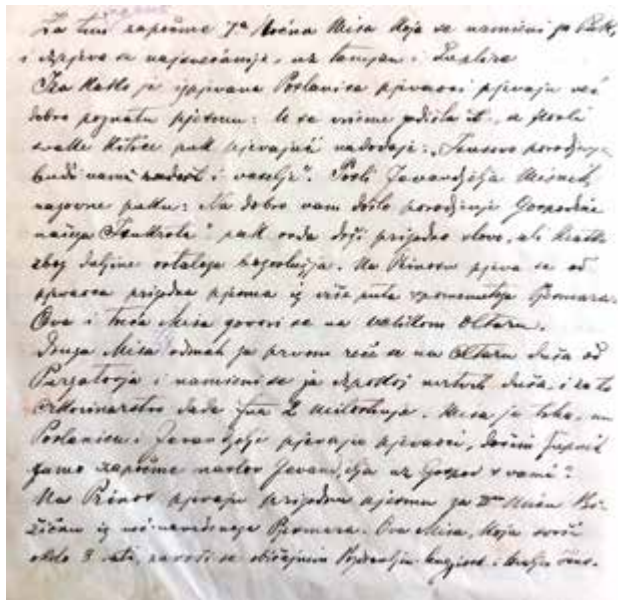 Za tim započme 1ª Noćna Misa koja se namieni za Puk,
i izpjeva se najsvečanije, uz tamjan i
Iza kako je izpjevana Poslanica pjevaoci pjevaju već
dobro poznatu pjesmu: U se vrieme godišta it., a posli
svake kitice puk pjevajuć nadodaje: „Isusovo porodjenje
budi nami radost i veselje". Posli Javandjelja Misnik
nazovne puku: Na dobro vam došlo porodjenje Gospodina
našega Isukrsta" pak onda drži prigodno slovo, ali kratko
zbog duljine ostaloga bogoslužja. Na Prinosu pjeva se od
pjevaoca prigodna pjesma iz više puta spomenutoga Pjesmara.
Ova i treća Misa govori se na velikom Oltaru.
Druga Misa odmah za prvom reče se na Oltaru duša od
Purgatorja i namieni se za izpokoj mrtvih duša, i za to
crkovinarstvo dade 2 milostinje. Misa je tiha, no
Poslanicu i Javandjelje pjevaju pjevaoci, dočim Župnik
samo započme naslov Javandjelja uz Gospod s vami".
Na Prinos pjevaju prigodnu pjesmu za IIu Misu Bo-
žićnu iz već navedenoga Pjesmara. Ova Misa, koja svrši
oko 3 sati, završi se običajnim